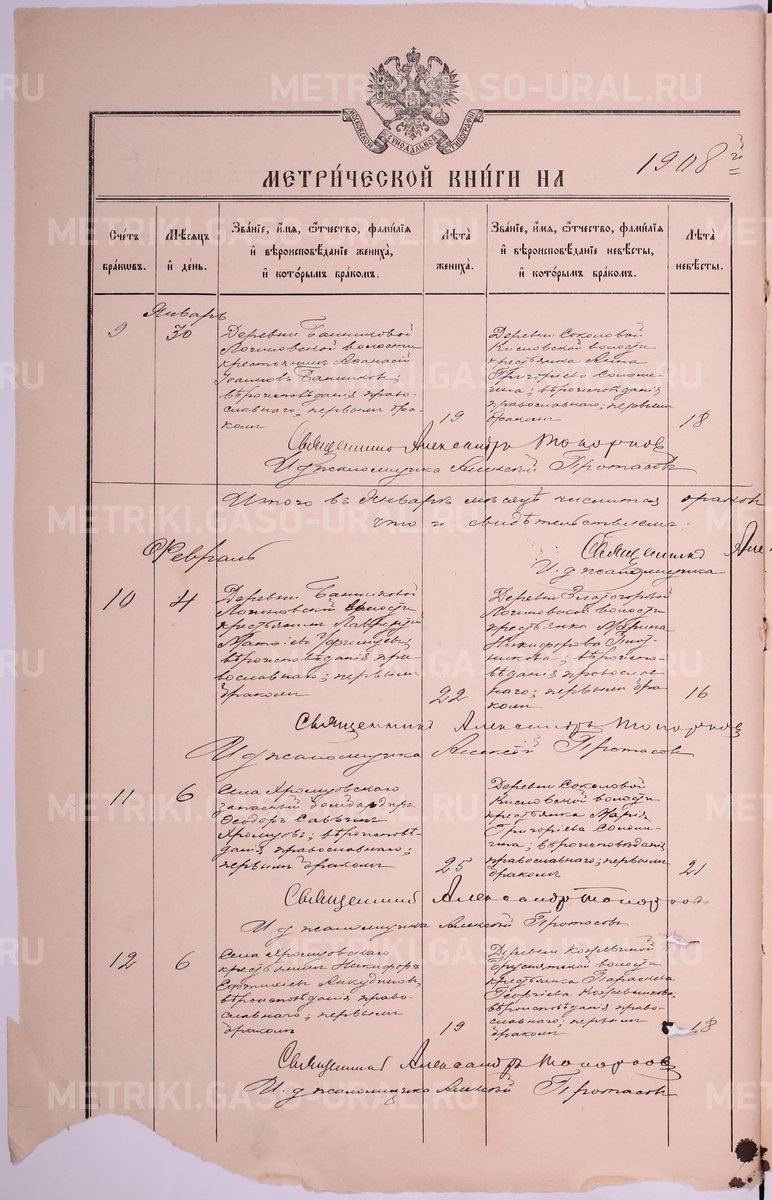 МОСКОВСКОЙ СѴНОДАЛЬНОЙ ТИПОГРАФІИ
МЕТРИ́ЧЕСКОЙ КНИ́ГИ НА 1908 й
Сче́тъ бра́ковъ.
Мѣ́сяцъ и де́нь.
Зва́нїе, и́мя, ѻ҆́тчество, фами́лїя и вѣроисповѣ́данїе жениха̀, и кото́рымъ бра́комъ.
Лѣ́та жениха̀.
Зва́нїе, и́мя, ѻ҆́тчество, фами́лїя и вѣроисповѣ́данїе невѣ́сты, и кото́рымъ бра́комъ.
Лѣ́та невѣ́сты.
Январь
9
30
Деревни Банниковой
Логиновской волости
крестьянинъ Афанасій
Іоанновъ Банниковъ;
вѣроисповѣданія право-
славнаго; первымъ бра-
комъ
19
Деревни Соколовой
Кисловской волости
крестьянка Анна
Григоріева
вѣроисповѣданія
православнаго; первымъ
бракомъ
18
Священникъ Александръ Топорковъ
И. д. псаломщика Алексій Протасовъ
Итого въ Январѣ мѣсяцѣ числится браковъ
что и свидѣтельствуемъ:
Священникъ Алек
И. д. псаломщика
Февраль
10
4
Деревни Банниковой
Логиновской волости
крестьянинъ Лаврентій
вѣроисповѣданія пра-
вославнаго; первымъ
бракомъ
22
Деревни Златогоровой
Логиновской волости
крестьянка Марина
Никифорова
вѣроиспо-
вѣданія православ-
наго; первымъ бра-
комъ
16
Священникъ Александръ Топорковъ
И. д. псаломщика Алексій Протасовъ
11
6
Села Хромцовскаго
запасный бомбардиръ
Ѳеодоръ Саввинъ
Хромцовъ; вѣроисповѣ-
данія православнаго;
первымъ бракомъ
25
Деревни Соколовой
Кисловской волости
крестьянка Марія
Григоріева
вѣроисповѣданія
православнаго; первымъ
бракомъ
21
Священникъ Александръ Топорковъ
И. д. псаломщика Алексій Протасовъ
12
6
Села Хромцовскаго
крестьянинъ Никифоръ
Евѳиміевъ Анкудиновъ;
вѣроисповѣданія право-
славнаго; первымъ
бракомъ
19
Деревни
Бруснятской волости
крестьянка Параскева
Георгіева Кожевникова;
вѣроисповѣданія право-
славнаго; первымъ
бракомъ
18
Священникъ Александръ Топорковъ
И. д. псаломщика Алексій Протасовъ
METRIKI.GASO-URAL.RU